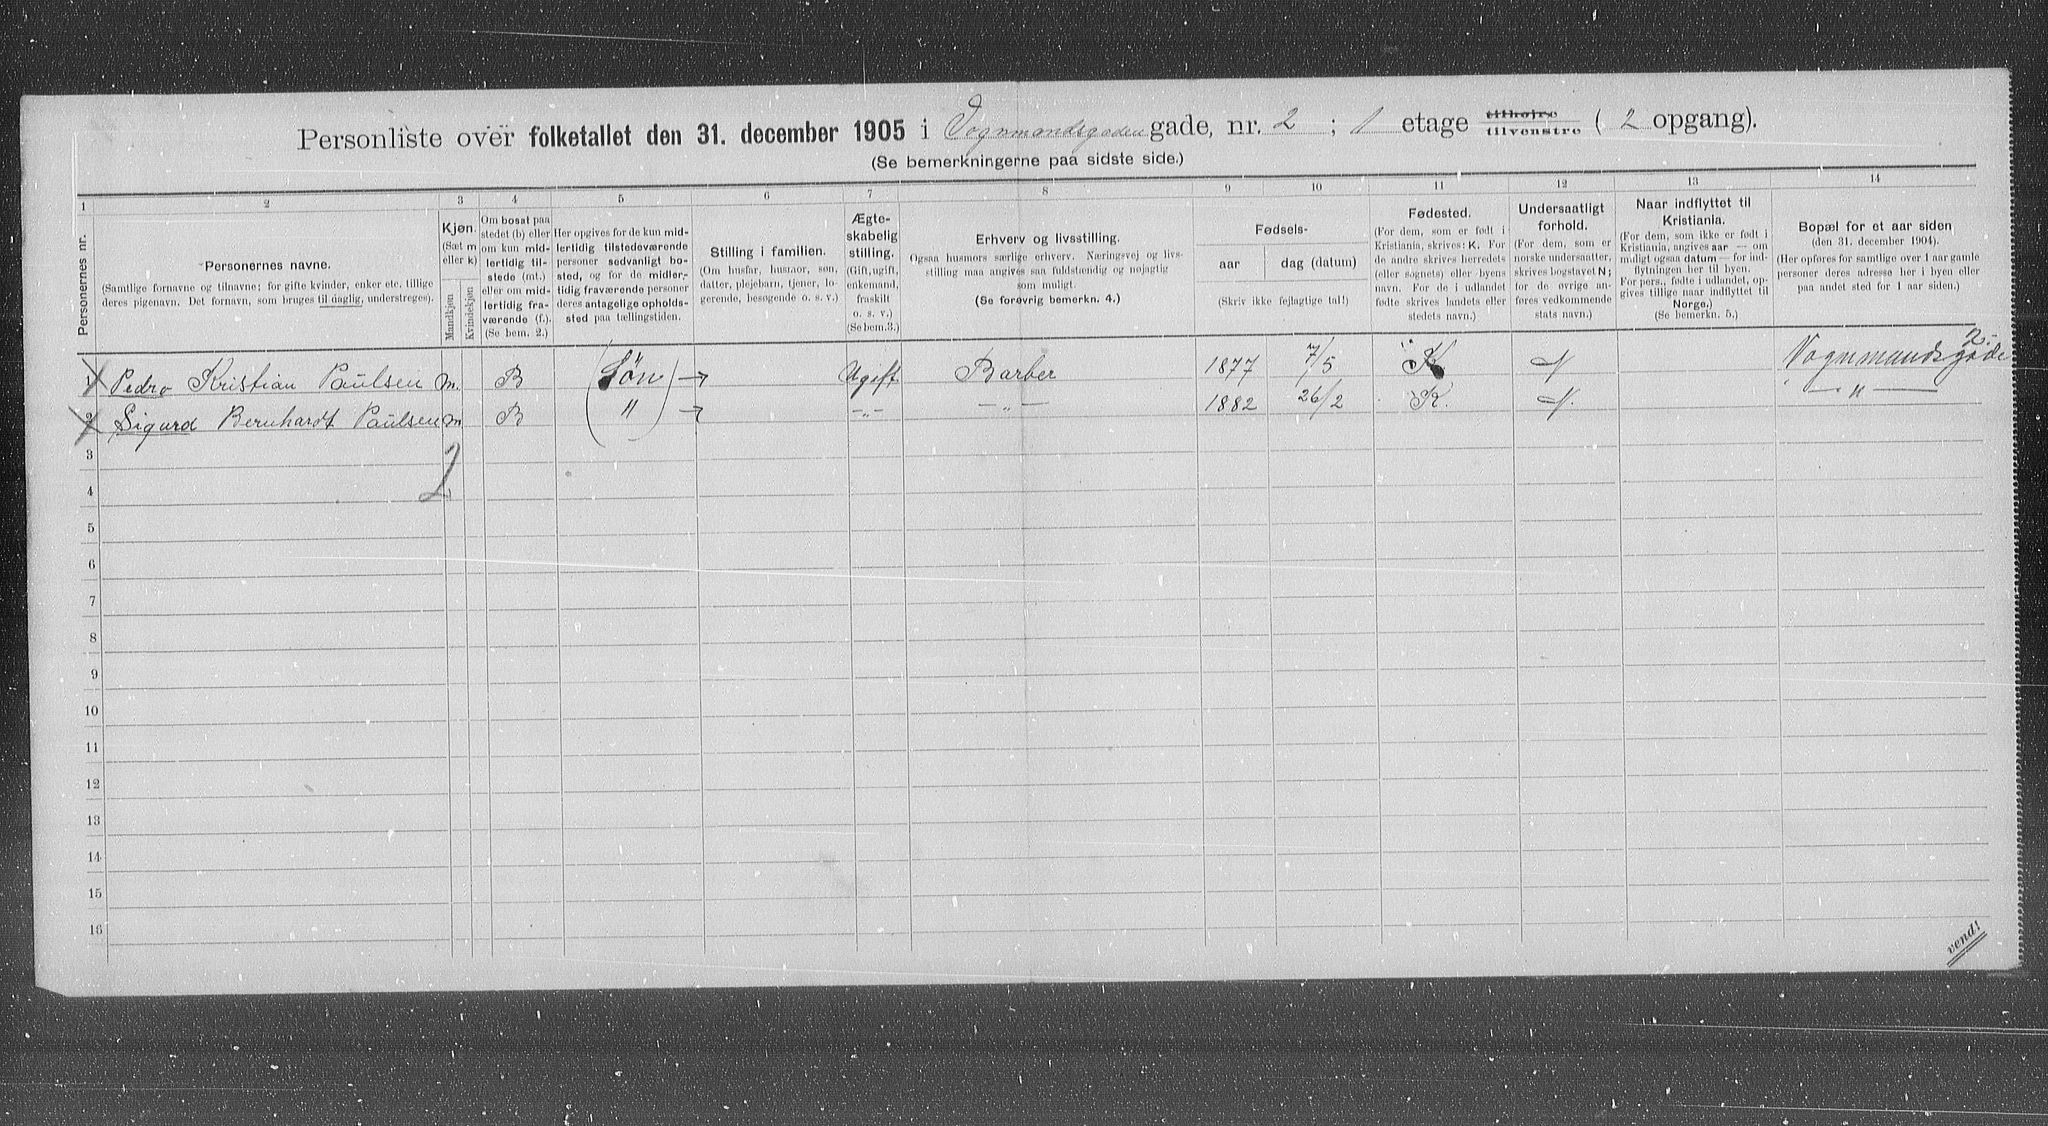 Personliste over folketallet den 31. december 1905 i Vognmandsgaden gade, nr. 2 ; 1 etage tilhøjre tilvenstre ( 2 opgang).
(Se bemerkningerne paa sidste side.)
1 2 3 4 5 6 7 8 9 10 11 12 13 14
Personernes nr.
Personernes navne.
(Samtlige fornavne og tilnavne; for gifte kvinder, enker etc. tillige
deres pigenavn. Det fornavn, som bruges til daglig, understreges).
Kjøn.
(Sæt m
eller k)
Mandkjøn
Kvindekjøn
Om bosat paa
stedet (b) eller
om kun mid-
lertidig til-
stede (mt.)
eller om mid-
lertidig fra-
værende (f.).
(Se bem. 2.)
Her opgives for de kun mid-
lertidig tilstedeværende
personer sedvanligt bo-
sted, og for de midler-
tidig fraværende personer
deres antagelige opholds-
sted paa tællingstiden.
Stilling i familien.
(Om husfar, husmor, søn,
datter, plejebarn, tjener, lo-
gerende, besøgende o. s. v.)
Ægte-
skabelig
stilling.
(Gift, ugift,
enkemand,
fraskilt
o. s. v.)
(Se bem.3.)
Erhverv og livsstilling.
Ogsaa husmors særlige erhverv. Næringsvej og livs-
stilling maa angives saa fuldstændig og nøjagtig
som muligt.
(Se forøvrig bemerkn. 4.)
Fødsels-
aar dag (datum)
(Skriv ikke fejlagtige tal!)
Fødested.
(For dem, som er født i
Kristiania, skrives: K. For
de andre skrives herredets
(eller sognets) eller byens
navn. For de i udlandet
fødte skrives landets eller
stedets navn.)
Undersaatligt
forhold.
(For dem, som er
norske undersaatter,
skrives bogstavet N;
for de øvrige an-
føres vedkommende
stats navn.)
Naar indflyttet til
Kristiania.
(For dem, som ikke er født i
Kristiania, angives aar — om
muligt ogsaa datum — for ind-
flytningen her til byen.
For pers., fødte i udlandet, op-
gives tillige naar indflyttet til
Norge.)
(Se bemerkn. 5.)
Bopæl for et aar siden
(den 31. december 1904).
(Her opføres for samtlige over 1 aar gamle
personer deres adresse her i byen eller
paa andet sted for 1 aar siden.)
1 Pedro Kristian Paulsen m. B (Søn) Ugift Barber 1877 7/5 K N Vognmandsgade 2.
2 Sigurd Bernhardt Paulsen m B " -"- -"- 1882 26/2 K. N. -"-
3
2
4
5
6
7
8
9
10
11
12
13
14
15
16
vend!